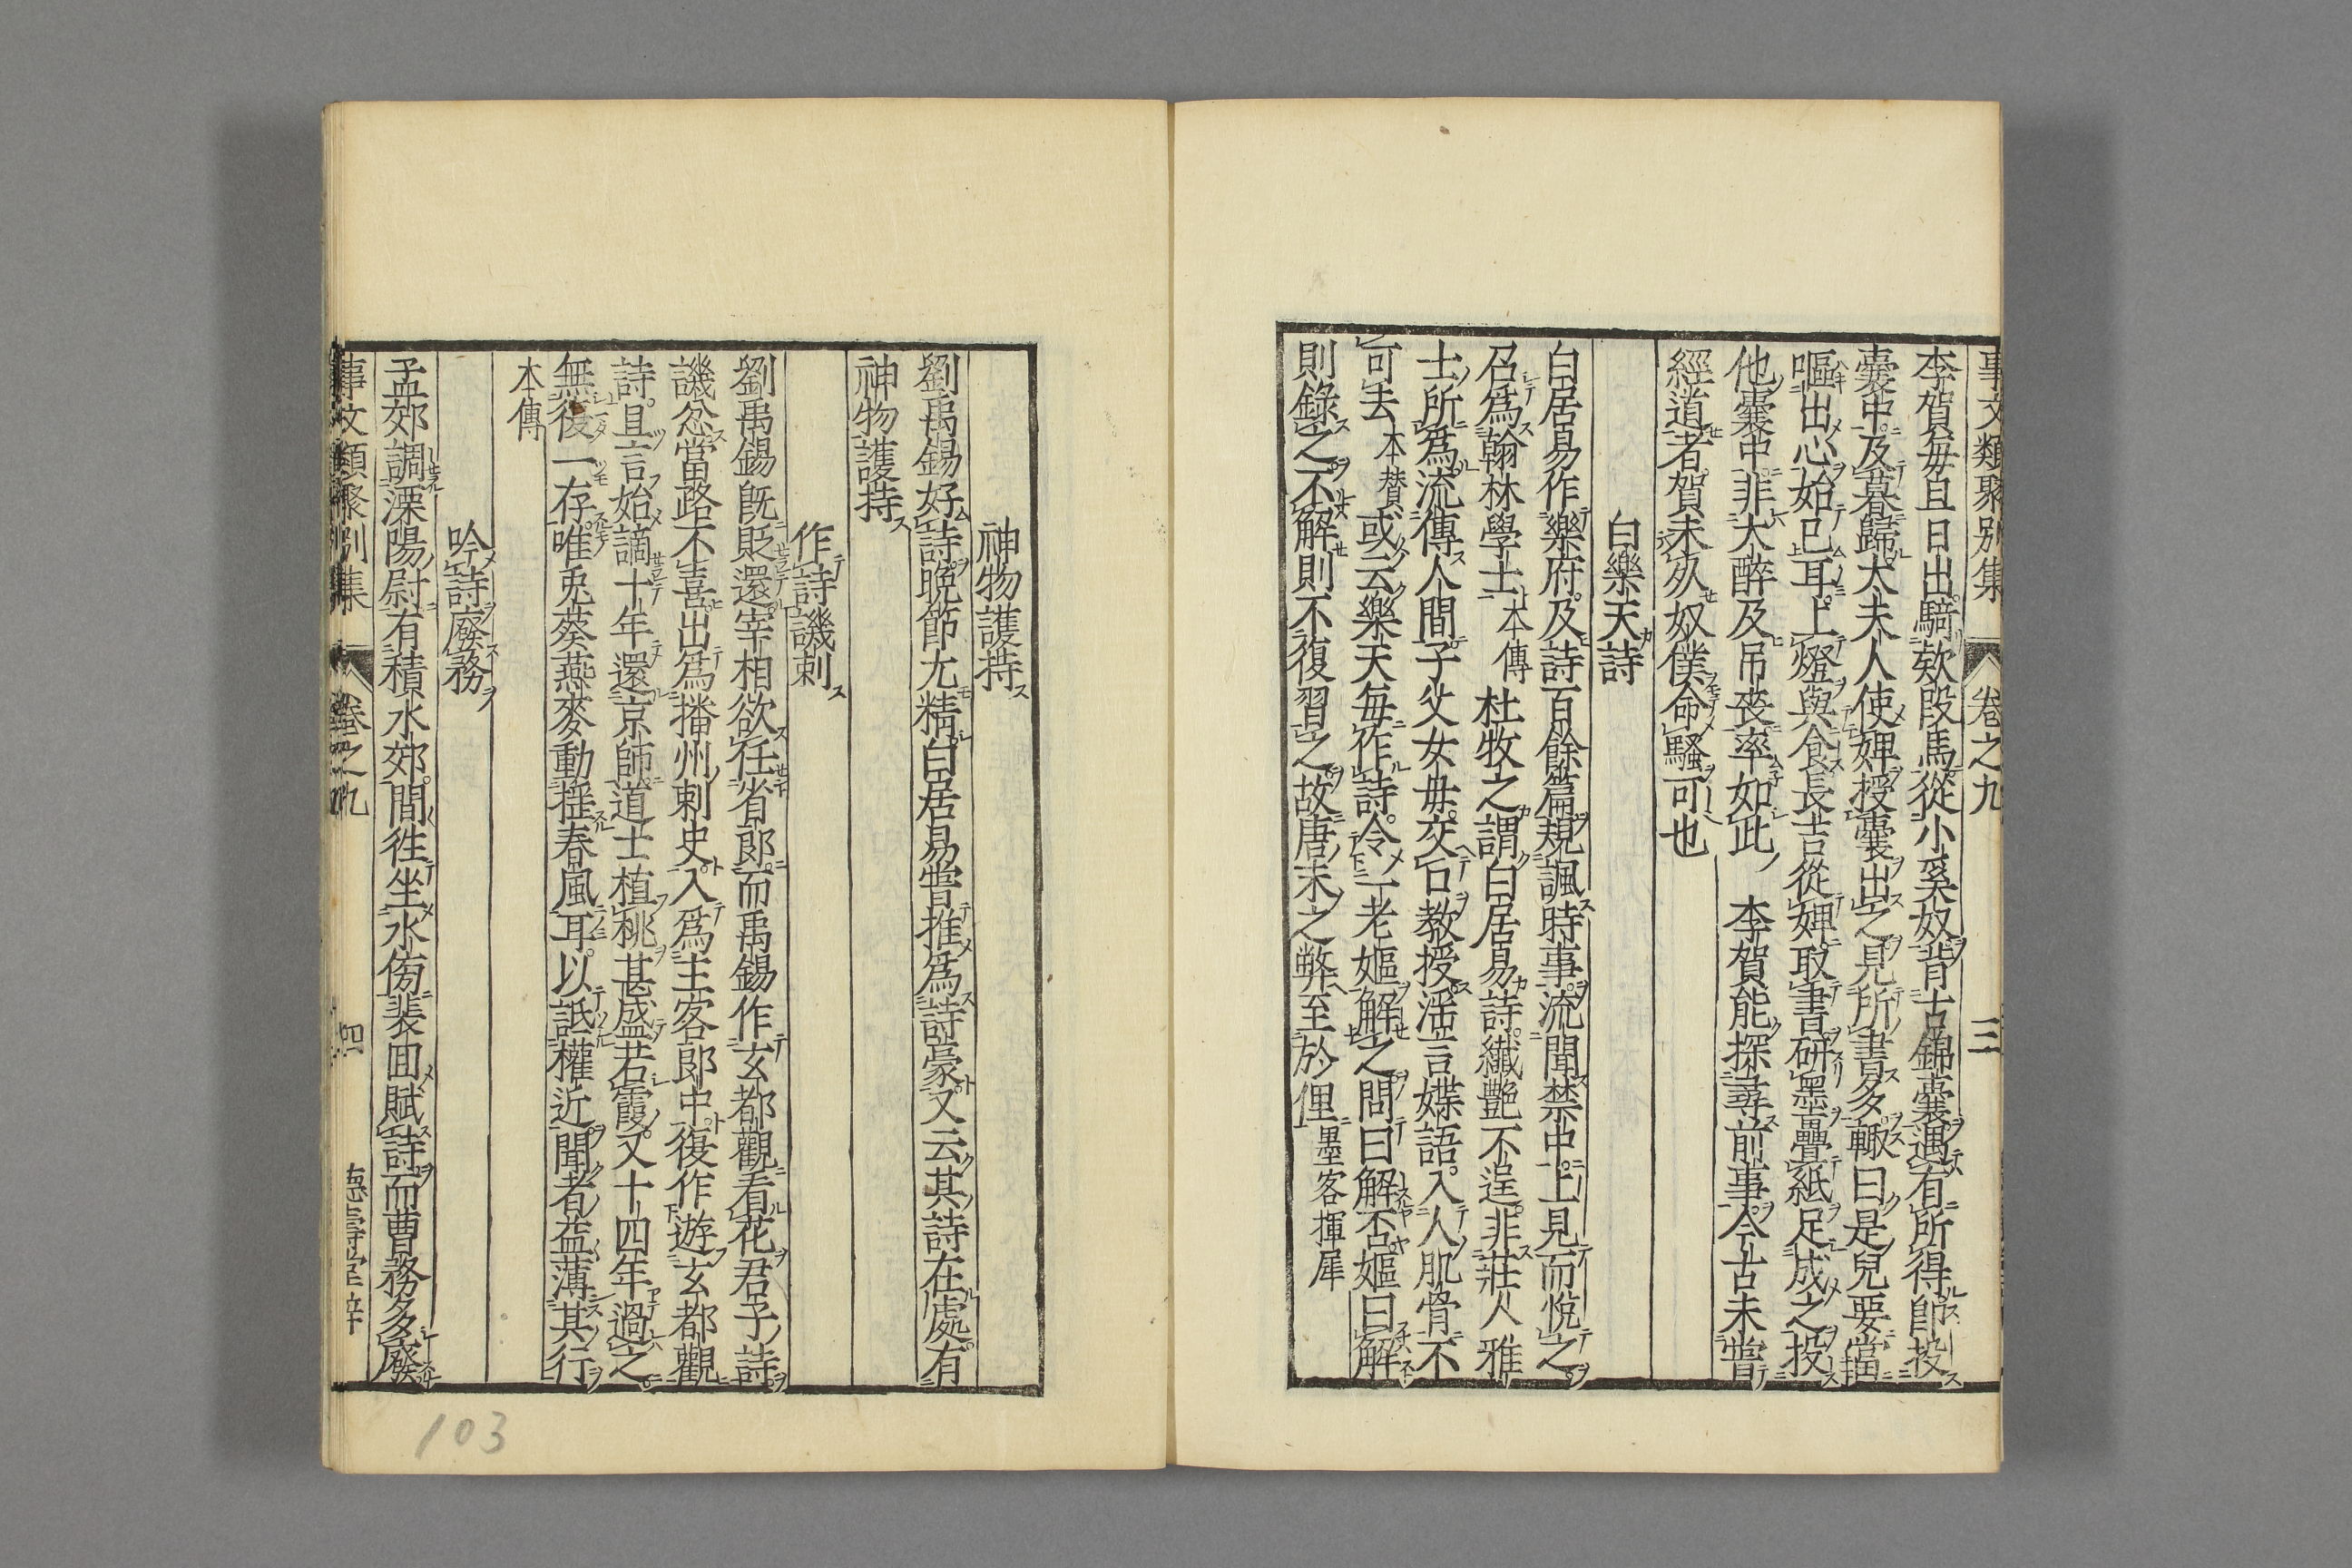 事文類聚別集 卷之九 三
李賀每旦日出騎欵段馬從小奚奴背古錦囊遇有所得即投
囊中及暮歸太夫人使婢授囊出之見所書多輙曰是兒要當
嘔出心始已耳上燈與食長吉從婢取書研墨疊紙足成之投
他囊中非大醉及吊喪率如此 李賀能探尋前事今古未嘗
經道者賀未夊奴僕命騷可也
白樂天詩
白居易作樂府及詩百餘篇規諷時事流聞禁中上見而悅之
召爲翰林學士 本傳 杜牧之謂白居易詩纎艷不逞非莊人雅
士所爲流傳人間子父女毋交口教授滛言媟語入人肌骨不
可去 本賛 或云樂天每作詩令一老嫗解之問曰解否嫗曰解
則錄之不解則不復習之故唐末之弊至於俚 墨客揮犀
神物護持
劉禹錫好詩晩節尤精白居易嘗推爲詩豪又云其詩在處有
神物護持
作詩譏刺
劉禹錫旣貶還宰相欲任省郎而禹錫作玄都觀看花君子詩
譏忿當路不喜出爲播州刺史入爲主客郎中復作遊玄都觀
詩且言始謫十年還京師道士植桃甚盛若霞又十四年過之
無復一存唯兎葵燕麥動揺春風耳以詆權近聞者益薄其行
本傳
吟詩廢務
孟郊調溧陽尉有積水郊間徃坐水傍裴囬賦詩而曹務多廢
事文類聚別集 卷之九 四
103